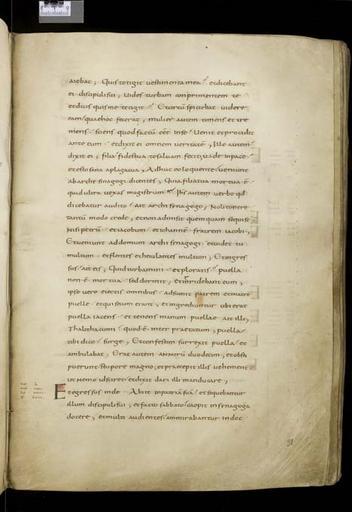 aiebat, Quis tetigit uestimenta mea, et dicebant
ei discipuli sui, uides turbam conprimentem te
et dicis quis me tetigit, Et circu spiciebat uidere
eam quae hoc fecerat, mulier autem timens et tre
mens sciens quod factu ee in se Uenit et procidit
ante eum et dixit ei omnem ueritate, Ille autem
dixit ei, filia fides tua te saluam fecit uade in pace
et esto sana a plaga tua, Adhuc eo loquente ueniunt
ab archi sinagogi dicentes, Quia filia tua mortua e
quid ultra uexas magistrum, Ihs autem uerbo qd
dicebatur audito ait archi synagogo, Noli timere
tantu modo crede, et non admisit quemquam sequi se
nisi petru et iacobum et iohanne fratrem iacobi,
Et ueniunt ad domum archi synagogi et uidet tu
multum et flentes et heiulantes multum, Et ingres
sus ait eis, Quid turbamini et ploratis puella
non e mortua sed dormit, et inridebant eum,
ipse uero eiectis omnibus adsumit patrem et matre
puelle et qui secum erant, et ingreditur ubi erat
puella iacens et tenens manum puellae ait illi,
Thalitha cumi quod e interpraetatum, puella
tibi dico surge, Et confestim surrexit puella et
ambulabat, Erat autem annoru duodecim, et obsti
puerunt stupore magno, et praecepit illis uehement
ut nemo id sciret et dixit dari illi manducare,
Egressus inde Abiit in patria sua et sequebantur
illum discipuli sui, et facto sabbato coepit in synagoga
docere, et multi audientes admirabantur in doc